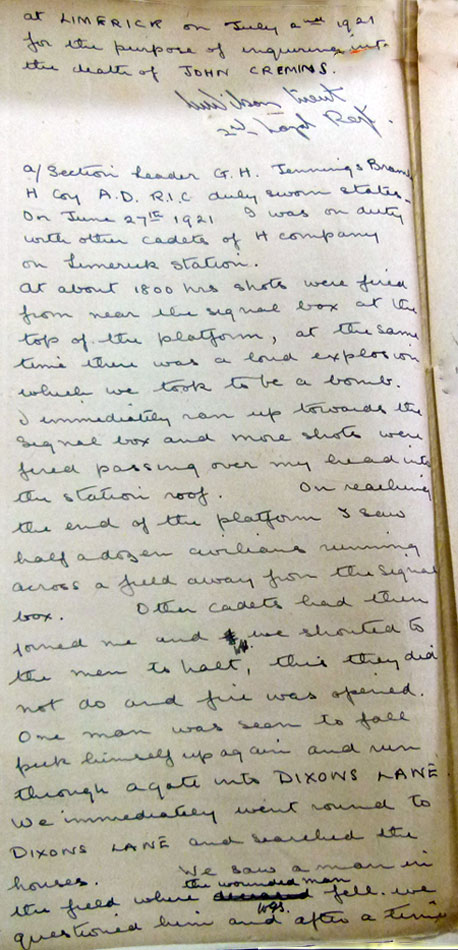 at LIMERICK on July 2nd 1921
for the purpose of inquiring into
the death of JOHN CREMINS.
Lieut
2nd Loyal Regt.
a/Section Leader G.H. Jennings Bram
H Coy A.D. R.I.C duly sworn states -
On June 27th 1921 I was on duty
with other cadets of H company
on Limerick Station.
At about 1800 hrs shots were fired
from near the signal box at the
top of the platform, at the same
time there was a loud explosion
which we took to be a bomb.
I immediately ran up towards the
signal box and more shots were
fired passing over my head into
the station roof. On reaching
the end of the platform I saw
half a dozen civilians running
across a field away from the signal
box. Other cadets had then
joined me and we shouted to
the men to halt, this they did
not do and fire was opened.
One man was seen to fall
pick himself up again and run
through a gate into DIXONS LANE.
We immediately went round to
DIXONS LANE and searched the
houses. We saw a man in
the field where the wounded man deceased fell. We
questioned him and after a time